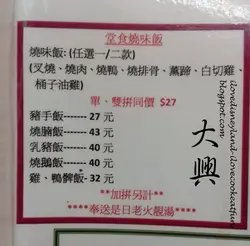 堂食燒味飯
燒味飯: (任選一/二款)
(叉燒、燒肉、燒鴨、燒排骨、薰蹄、白切雞、
桶子油雞)
單、雙拼同價 $27
豬手飯------- 27 元
燒腩飯------- 43 元
乳豬飯------- 40 元
燒鵝飯------- 40 元
雞、鴨髀飯--- 32 元
**加拼另計**
****奉送是日老火靚湯****
大興
ilovedisneyland-ilovecookeatfun
.blogspot.com